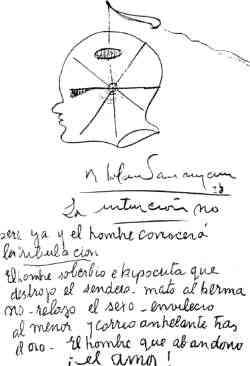 La intuición no
sera ya y el hombre conocerá
la tribulacion
El hombre soberbio e hipocrita que
destrozo el sendero - mato al herma
no - relajo el sexo - envilecio
al menor y corrio anhelante tras
el oro - El hombre que abandono
¡el amor!